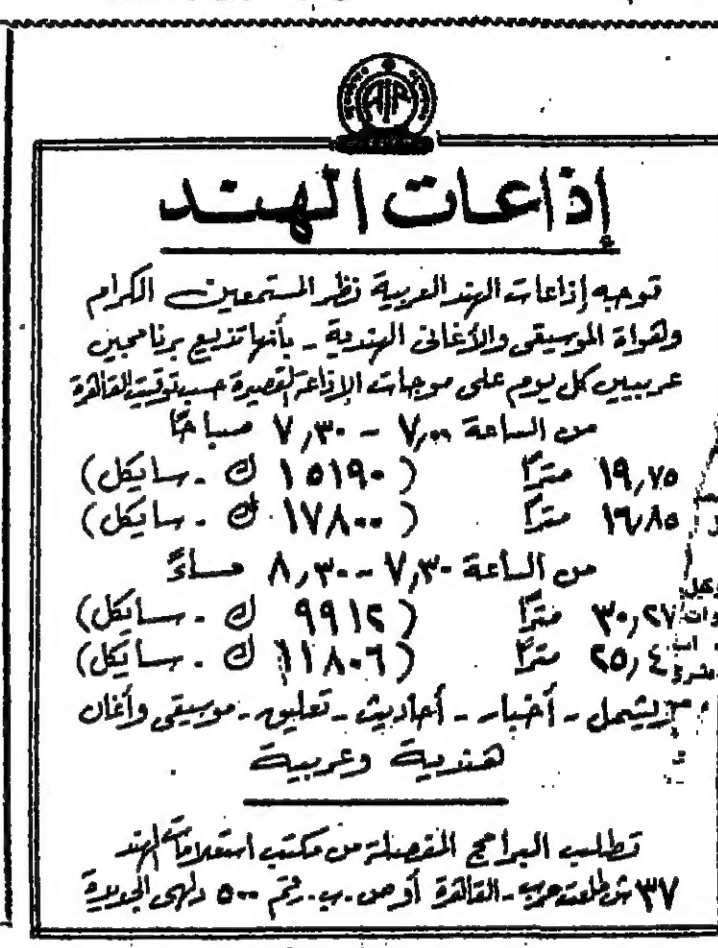 AIR
إذاعات الهند
توجه إذاعات الهند العربية نظر المستمعين الكرام
وهواة الموسيقى والأغاني الهندية - بأنها تذيع برنامجين
عربيين كل يوم على موجات الإذاعة القصيرة حسب توقيت القاهرة
من الساعة ٧,٠٠ - ٧,٣٠ صباحًا
١٩,٧٥ مترًا (١٥١٩٠ ك . سايكل)
١٦,٨٥ مترًا (١٧٨٠٠ ك . سايكل)
من الساعة ٧,٣٠ - ٨,٣٠ مساءً
٣٠,٢٧ مترًا (٩٩١٢ ك . سايكل)
٢٥,٤ مترًا (١١٨٠٦ ك . سايكل)
تشمل - أخبار - أحاديث - تعليق - موسيقى وأغان
هندية وعربية
تطلب البرامج المفصلة من مكتب استعلامات الهند
٣٧ ش طلعت حرب - القاهرة أو ص . ب . رقم ٥٠٠ دلهى الجديدة